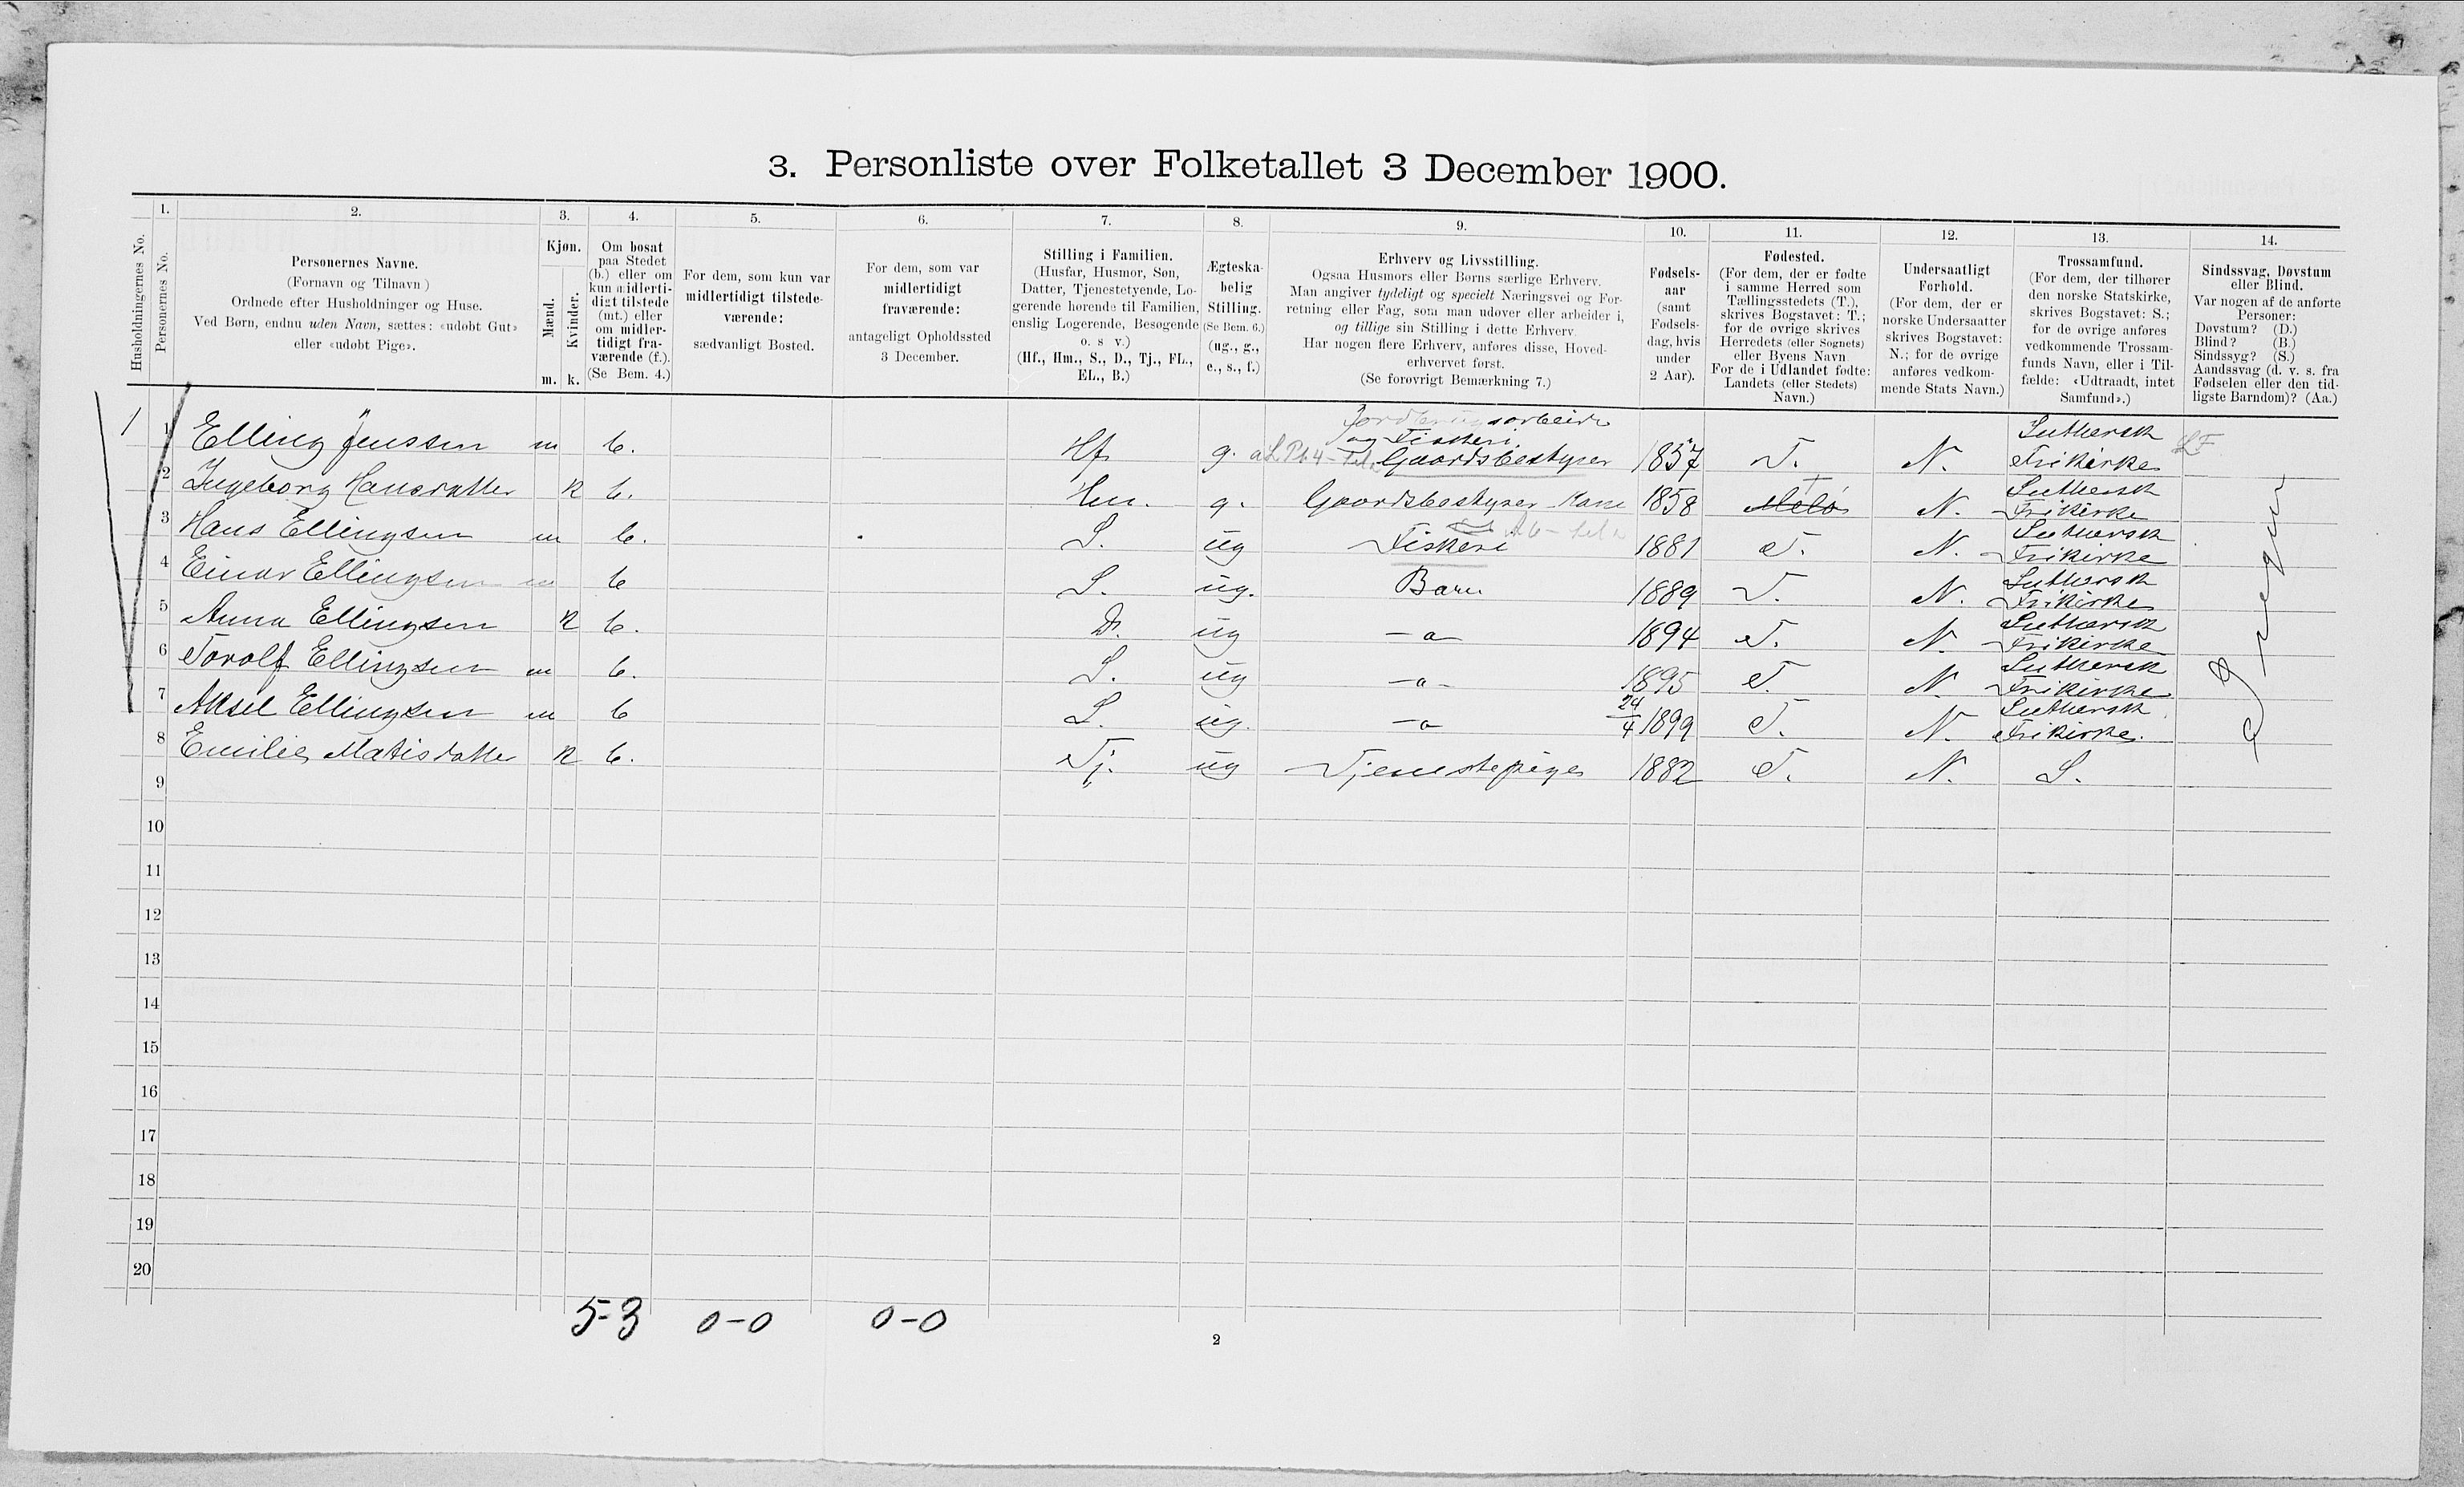 3. Personliste over Folketallet 3 December 1900.
1. 2. 3. 4. 5. 6. 7. 8. 9. 10. 11. 12. 13. 14.
Husholdningernes No.
Personernes No.
Personernes Navne.
(Fornavn og Tilnavn)
Ordnede efter Husholdninger og Huse.
Ved Børn, endnu uden Navn, sættes: «udøbt Gut»
eller «udøbt Pige».
Kjøn.
Mænd.
Kvinder.
m. k.
Om bosat
paa Stedet
(b.) eller om
kun midlerti-
digt tilstede
(mt.) eller
om midler-
tidigt fra-
værende (f.).
(Se Bem. 4.)
For dem, som kun var
midlertidigt tilstede-
værende:
sædvanligt Bosted.
For dem, som var
midlertidigt
fraværende:
antageligt Opholdssted
3 December.
Stilling i Familien.
(Husfar, Husmor, Søn,
Datter, Tjenestetyende, Lo-
gerende hørende til Familien,
enslig Logerende, Besøgende
o. s v.)
(Hf., Hm., S., D., Tj., FL.,
EL., B.)
Ægteska-
belig
Stilling.
(Se Bem. 6.)
(ug., g.,
e., s., f.)
Erhverv og Livsstilling.
Ogsaa Husmors eller Børns særlige Erhverv.
Man angiver tydeligt og specielt Næringsvei og For-
retning eller Fag, som man udøver eller arbeider i,
og tillige sin Stilling i dette Erhverv.
Har nogen flere Erhverv, anføres disse, Hoved-
erhvervet først.
(Se forøvrigt Bemærkning 7.)
Fødsels-
aar
(samt
Fødsels-
dag, hvis
under
2 Aar).
Fødested.
(For dem, der er fødte
i samme Herred som
Tællingsstedets (T.),
skrives Bogstavet: T.;
for de øvrige skrives
Herredets (eller Sognets)
eller Byens Navn
For de i Udlandet fødte:
Landets (eller Stedets)
Navn.)
Undersaatligt
Forhold.
(For dem, der er
norske Undersaatter
skrives Bogstavet:
N.; for de øvrige
anføres vedkom-
mende Stats Navn.)
Trossamfund.
(For dem, der tilhører
den norske Statskirke,
skrives Bogstavet: S.;
for de øvrige anføres
vedkommende Trossam-
funds Navn, eller i Til-
fælde: «Udtraadt, intet
Samfund».)
Sindssvag, Døvstum
eller Blind.
Var nogen af de anførte
Personer:
Døvstum? (D.)
Blind? (B.)
Sindssyg? (S.)
Aandssvag (d. v. s. fra
Fødselen eller den tid-
ligste Barndom)? (Aa.)
Jordbrugsarbeide
og Fiskeri
1 1 Elling Jenssen m b. Hf g. Gaardsbestyrer 1857 T. N. Luthersk Frikirke LF
2 Ingeborg Hansdatter k b. Hm. g. Gaardsbestyrer Kone 1858 Melø T N. Luthersk Frikirke
3 Hans Ellingsen m b. S. ug Fiskeri 1881 T. N. Luthersk Frikirke
4 Einar Ellingsen m b S. ug. Barn 1889 T. N. Luthersk Frikirke
5 Anna Ellingsen k b. D. ug —a— 1894 T. N. Luthersk Frikirke
6 Torolf Ellingsen m b. S. ug —a— 1895 T. N. Luthersk Frikirke
7 Aksel Ellingsen m b S. ug. —a 24/4 1899 T. N. Luthersk Frikirke.
8 Emilie Matisdatter k b. Tj. ug Tjenestepige 1882 T. N. S.
Ingen
9
10
11
12
13
14
15
16
17
18
19
20
5-3 0-0 0-0
2